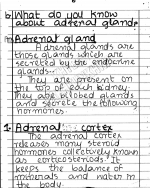 b) What do you know
about adrenal gland?
Adrenal gland
Adrenal glands are
those glands which are
secreted by the endocrine
glands.
They are present on
the top of each kidney.
They are bilobed glands
and secrete the following
hormones.
1. Adrenal cortex
The adrenal cortex
releases many steroid
hormones collectively known
as corticosteroids. It
keeps the balance of
minerals and water in
the body.